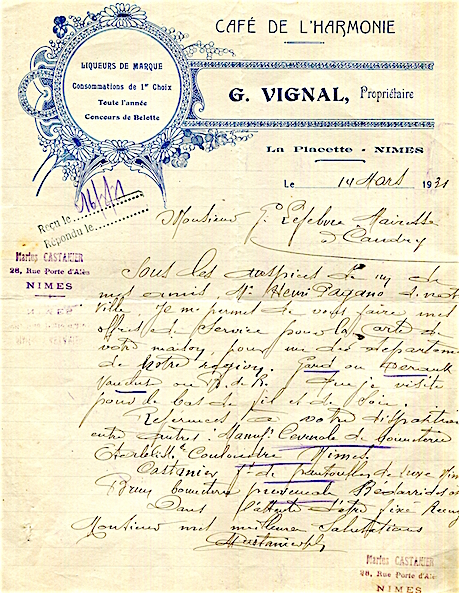 CAFÉ DE L'HARMONIE
LIQUEURS DE MARQUE
Consommations de 1er Choix
Toute l'année
Concours de Belotte
G. VIGNAL, Propriétaire
La Placette - NIMES
Le 14 Mars 1931
Reçu le
Répondu le
Monsieur Lefebvre
Caudry
Marius CASTANIER
28, Rue Porte d'Alès
NIMES
Sous les auspices de un de
mes amis Mr Henri Pagano de votre
ville, Je me permet de vous faire mes
offres de service pour la carte de
votre maison, pour un des départements
de notre région. Gard ou Herault
Vaucluse ou B. de R. que je visite
pour le bas de fil et de soie.
References a votre disposition
entre autres. Manufre Cevenole de bonneterie
Coulondre Nimes.
Castanier fque de pantoufles de luxe Nimes
Brun bonneterie provencale Bédarrides
Dans l'attente d'etre fixé Recevez
Monsieur mes meilleures Salutations
MCastanier
Marius CASTANIER
28, Rue Porte d'Alès
NIMES